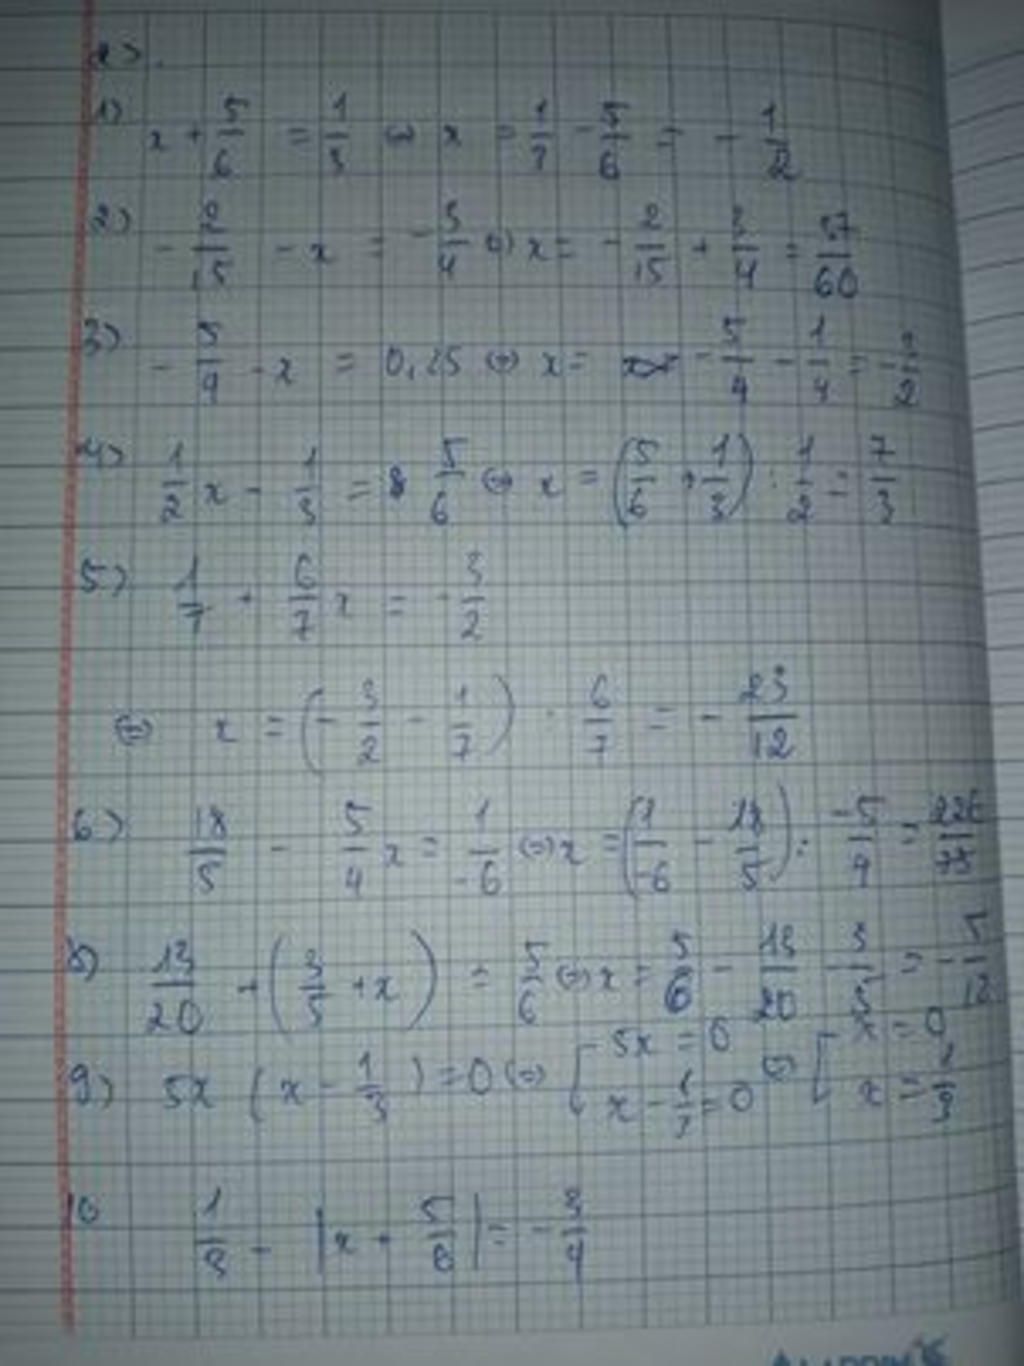 1)
x + 5/6 = 1/3 ⇔ x = 1/3 - 5/6 = - 1/2
2) - 2/15 - x = - 3/4 ⇔ x = - 2/15 + 3/4 = 37/60
3) - 5/4 - x = 0,25 ⇔ x = - 5/4 - 1/4 = - 3/2
4) 1/2 x - 1/3 = 5/6 ⇔ x = (5/6 + 1/3) : 1/2 = 7/3
5) 1/7 + 6/7 x = - 3/2
⇔ x = (- 3/2 - 1/7) : 6/7 = - 23/12
6) 18/5 - 5/4 x = 1/-6 ⇔ x = (1/-6 - 18/5) : -5/4 = 226/75
8) 13/20 + (3/5 + x) = 5/6 ⇔ x = 5/6 - 13/20 - 3/5 = - 5/12
9) 5x (x - 1/3) = 0 ⇔ [ 5x = 0 ⇔ [ x = 0
x - 1/3 = 0 x = 1/3
10 1/3 - |x + 5/8| = - 3/4